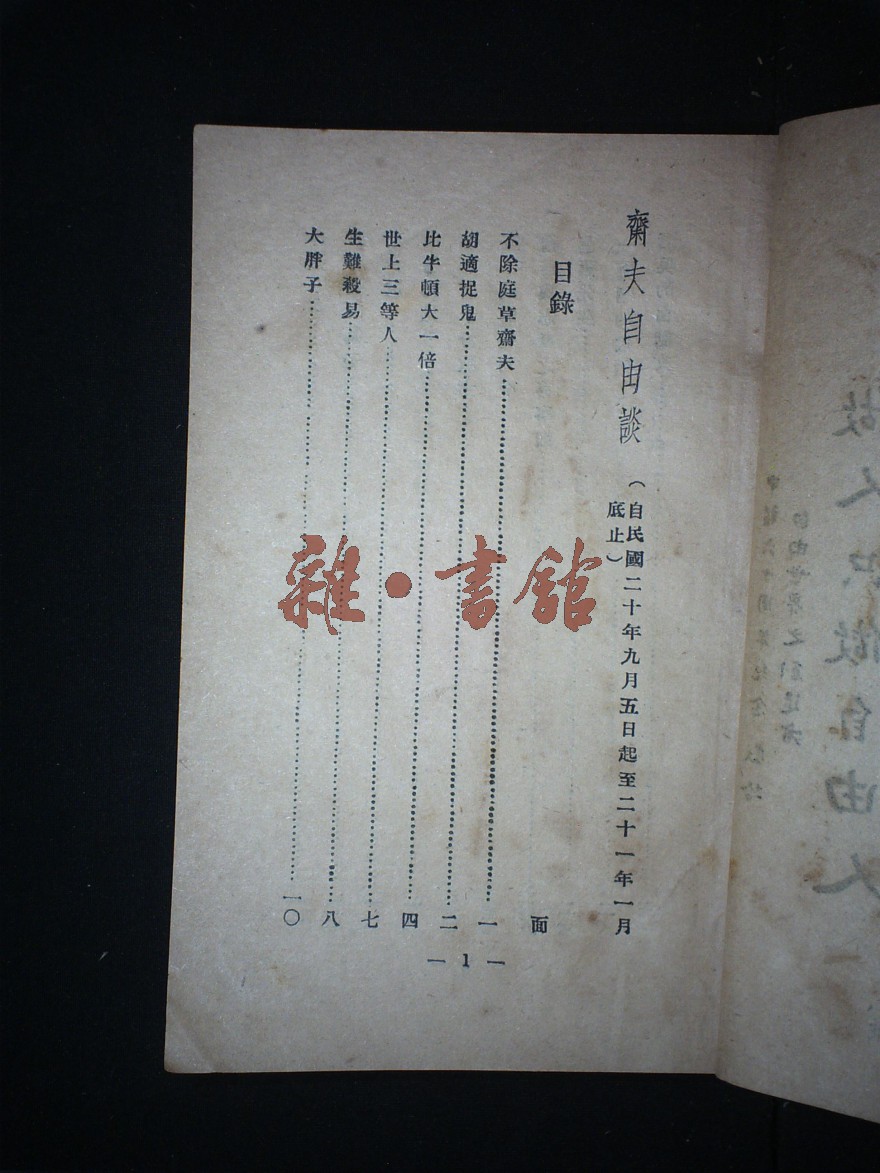 齋夫自由談
（自民國二十年九月五日起至二十一年一月
底止）
目錄
面
不除庭草齋夫…一
胡適捉鬼…二
比牛頓大一倍…四
世上三等人…七
生難殺易…八
大胖子…一〇
— 1 —
雜·書館